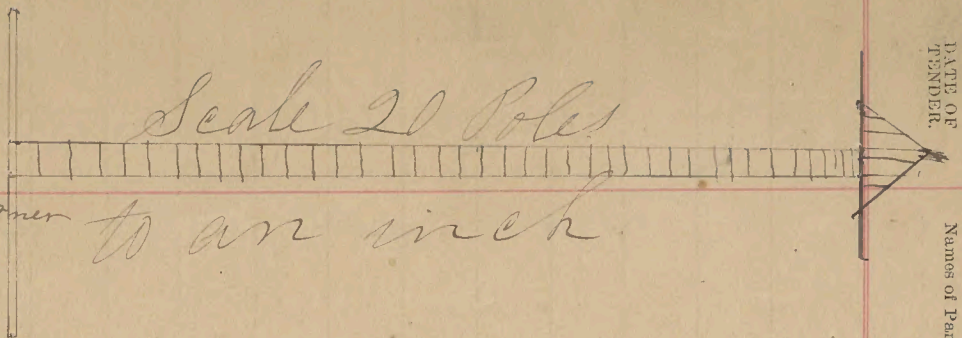 Scale 20 Poles
to an inch
DATE OF
TENDER.
Names of